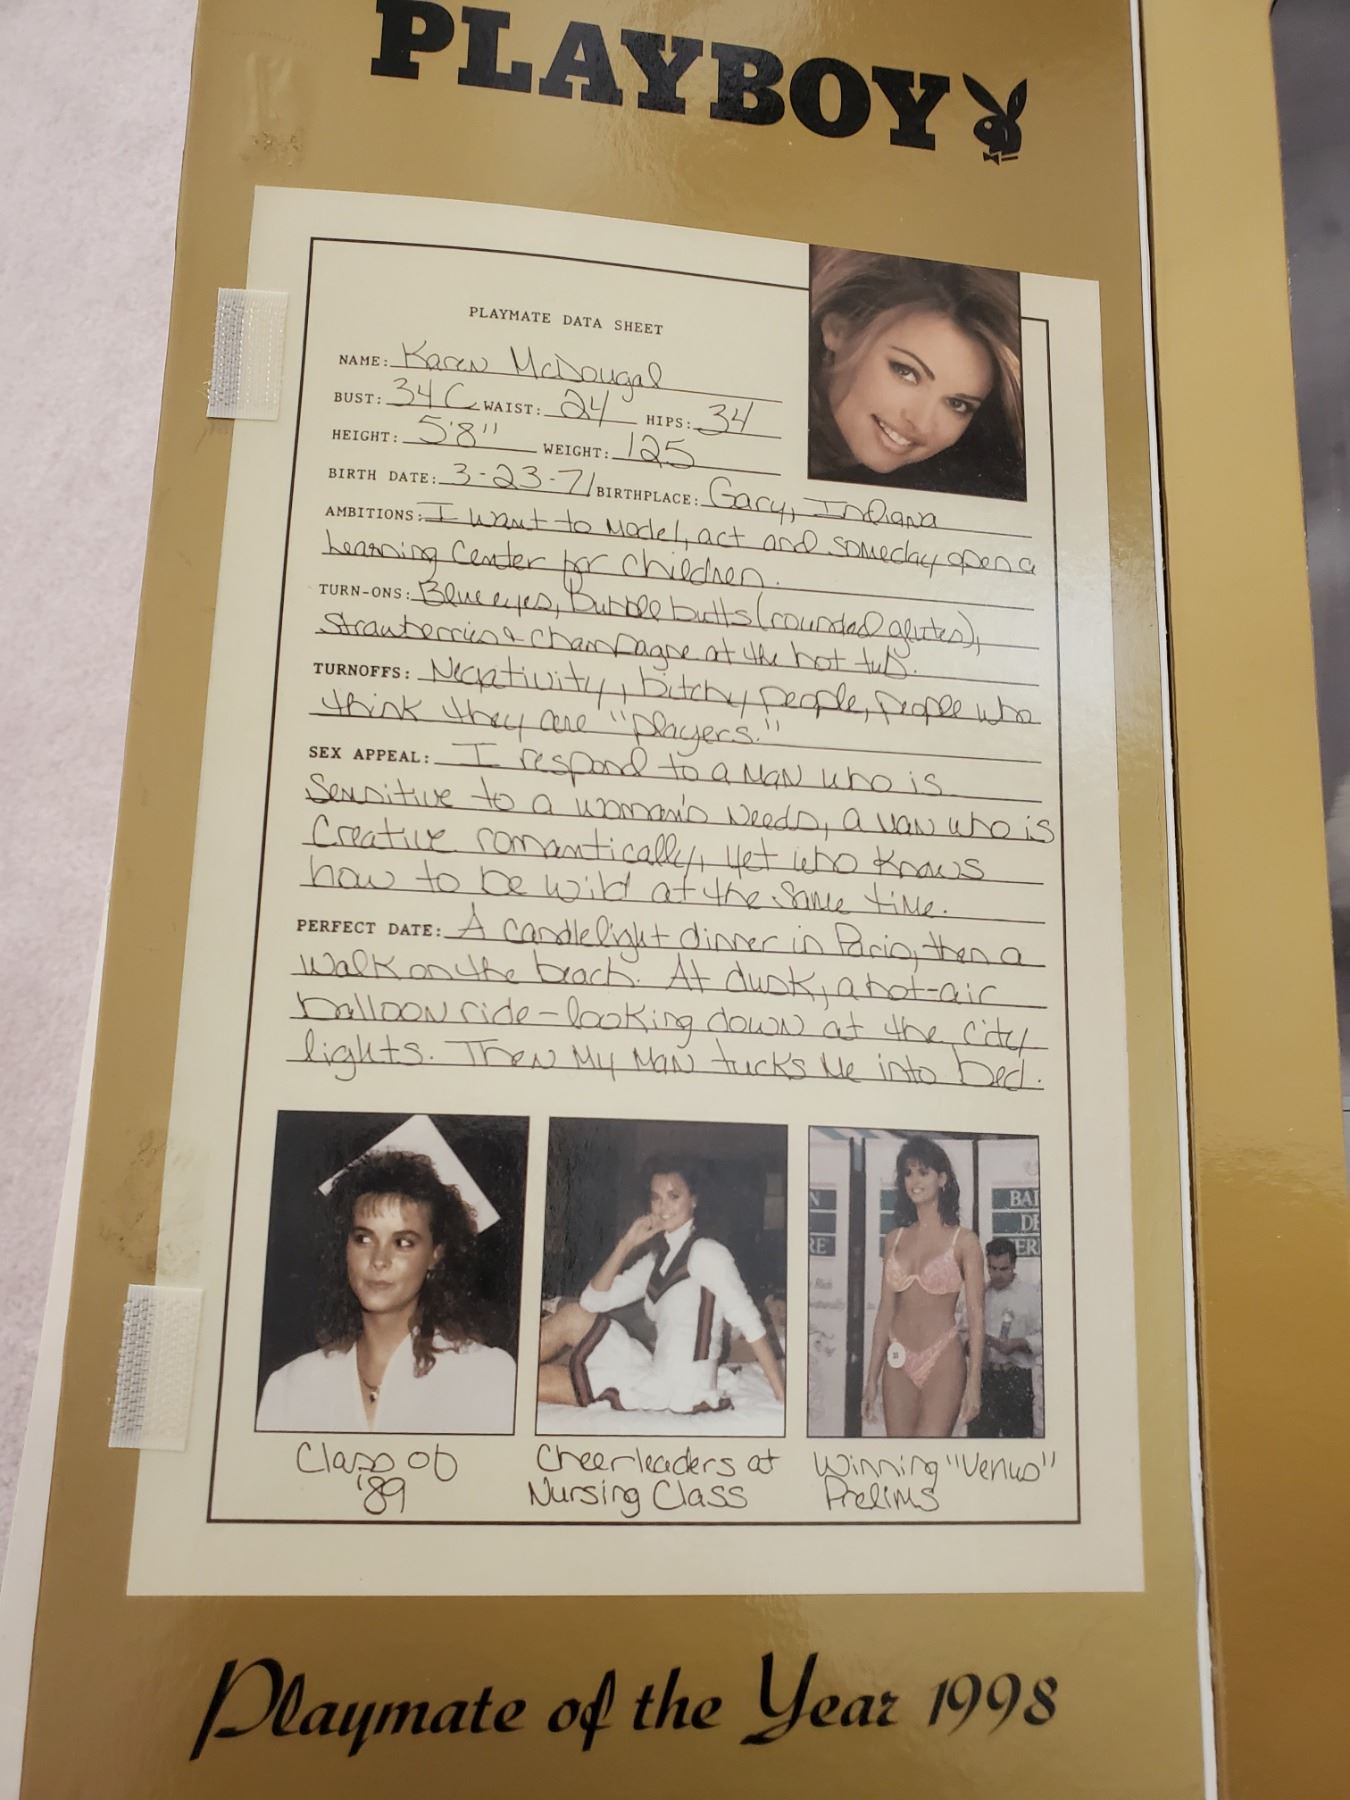 PLAYBOY
PLAYMATE DATA SHEET
NAME: Karen McDougal
BUST: 34C WAIST: 24 HIPS: 34
HEIGHT: 5'8" WEIGHT: 125
BIRTH DATE: 3-23-71 BIRTHPLACE: Gary, Indiana
AMBITIONS: I want to model, act and someday open a
Learning Center for children.
TURN-ONS: Blue eyes, Bubble butts (rounded glutes),
Strawberries & Champagne at the hot tub.
TURNOFFS: Negativity, bitchy people, people who
think they are "players."
SEX APPEAL: I respond to a man who is
Sensitive to a woman's needs, a man who is
Creative romantically, yet who knows
how to be wild at the same time.
PERFECT DATE: A candlelight dinner in Paris, then a
walk on the beach. At dusk, a hot-air
balloon ride - looking down at the city
lights. Then my man tucks me into bed.
N
RE
BAI
DE
ER
Class of
'89
Cheerleaders at
Nursing Class
Winning "Venus"
Prelims
Playmate of the Year 1998